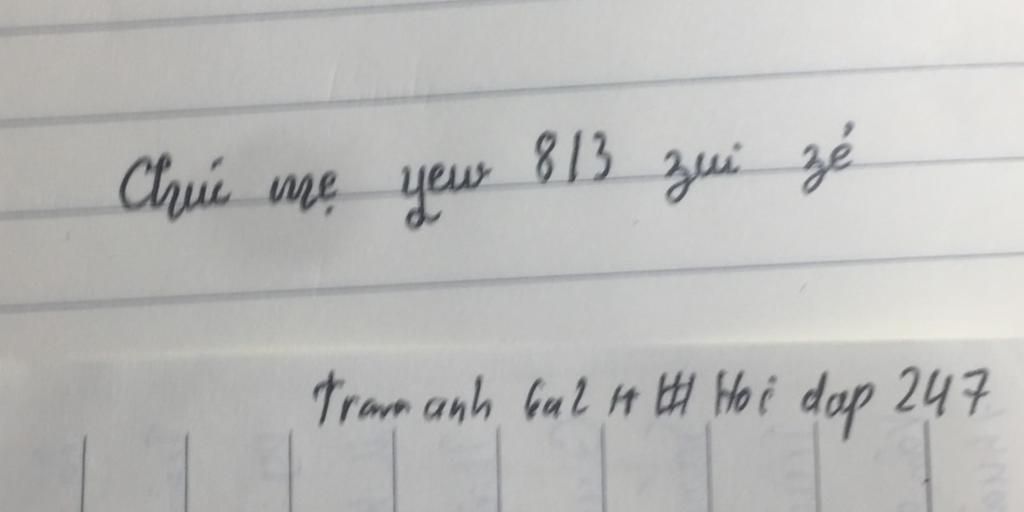 Chúc mẹ yew 813 zui zẻ
tram anh 6a2 Hoi dap 247